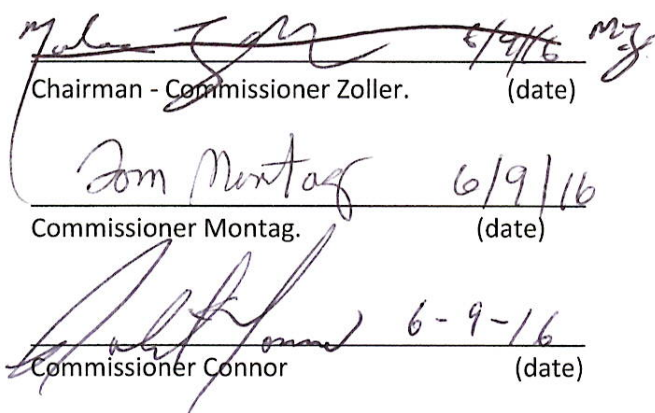 6/9/16 MZ
Chairman - Commissioner Zoller. (date)
Tom Montag 6/9/16
Commissioner Montag. (date)
6-9-16
Commissioner Connor (date)